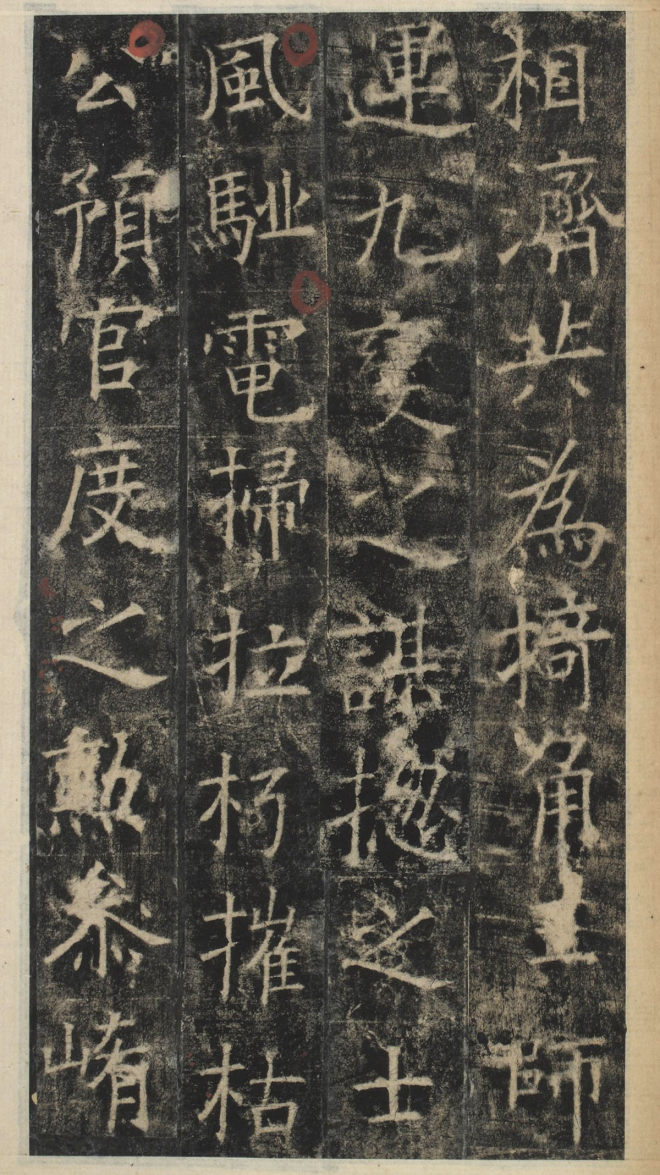 相濟共為掎角王師
運九變之謀摠之士
風駈電掃拉朽摧枯
公預官度之勳叅崤